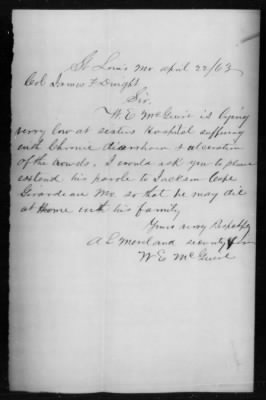 St Louis Mo April 22/63
Col James F Dwight
Sir.
W. E. McGuire is lying
very low at sesters Hospital suffering
with Chronic diarrhoea & ulceration
of the bowels. I would ask you to please
extend his parole to Jackson Cape
Girardeau Mo. so that he may die
at Home with his family
Yours very Respetfly
A L Moreland security for
W E McGuire